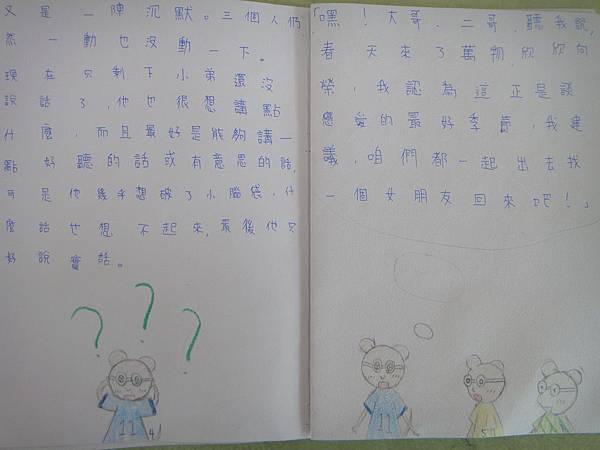 又是一陣沉默。三個人仍
然一動也沒動一下。
現在只剩下小弟還沒
說話了,他也很想講點
什麼,而且最好是能夠講一
點好聽的話或有意思的話,
可是他幾乎想破了小腦袋,什
麼話也想不起來,最後他只
好說實話。
11
4
「嘿!大哥、二哥,聽我說,
春天來了萬物欣欣向
榮,我認為這正是談
戀愛的最好季節,我建
議,咱們都一起出去找
一個女朋友回來吧!」
11
5